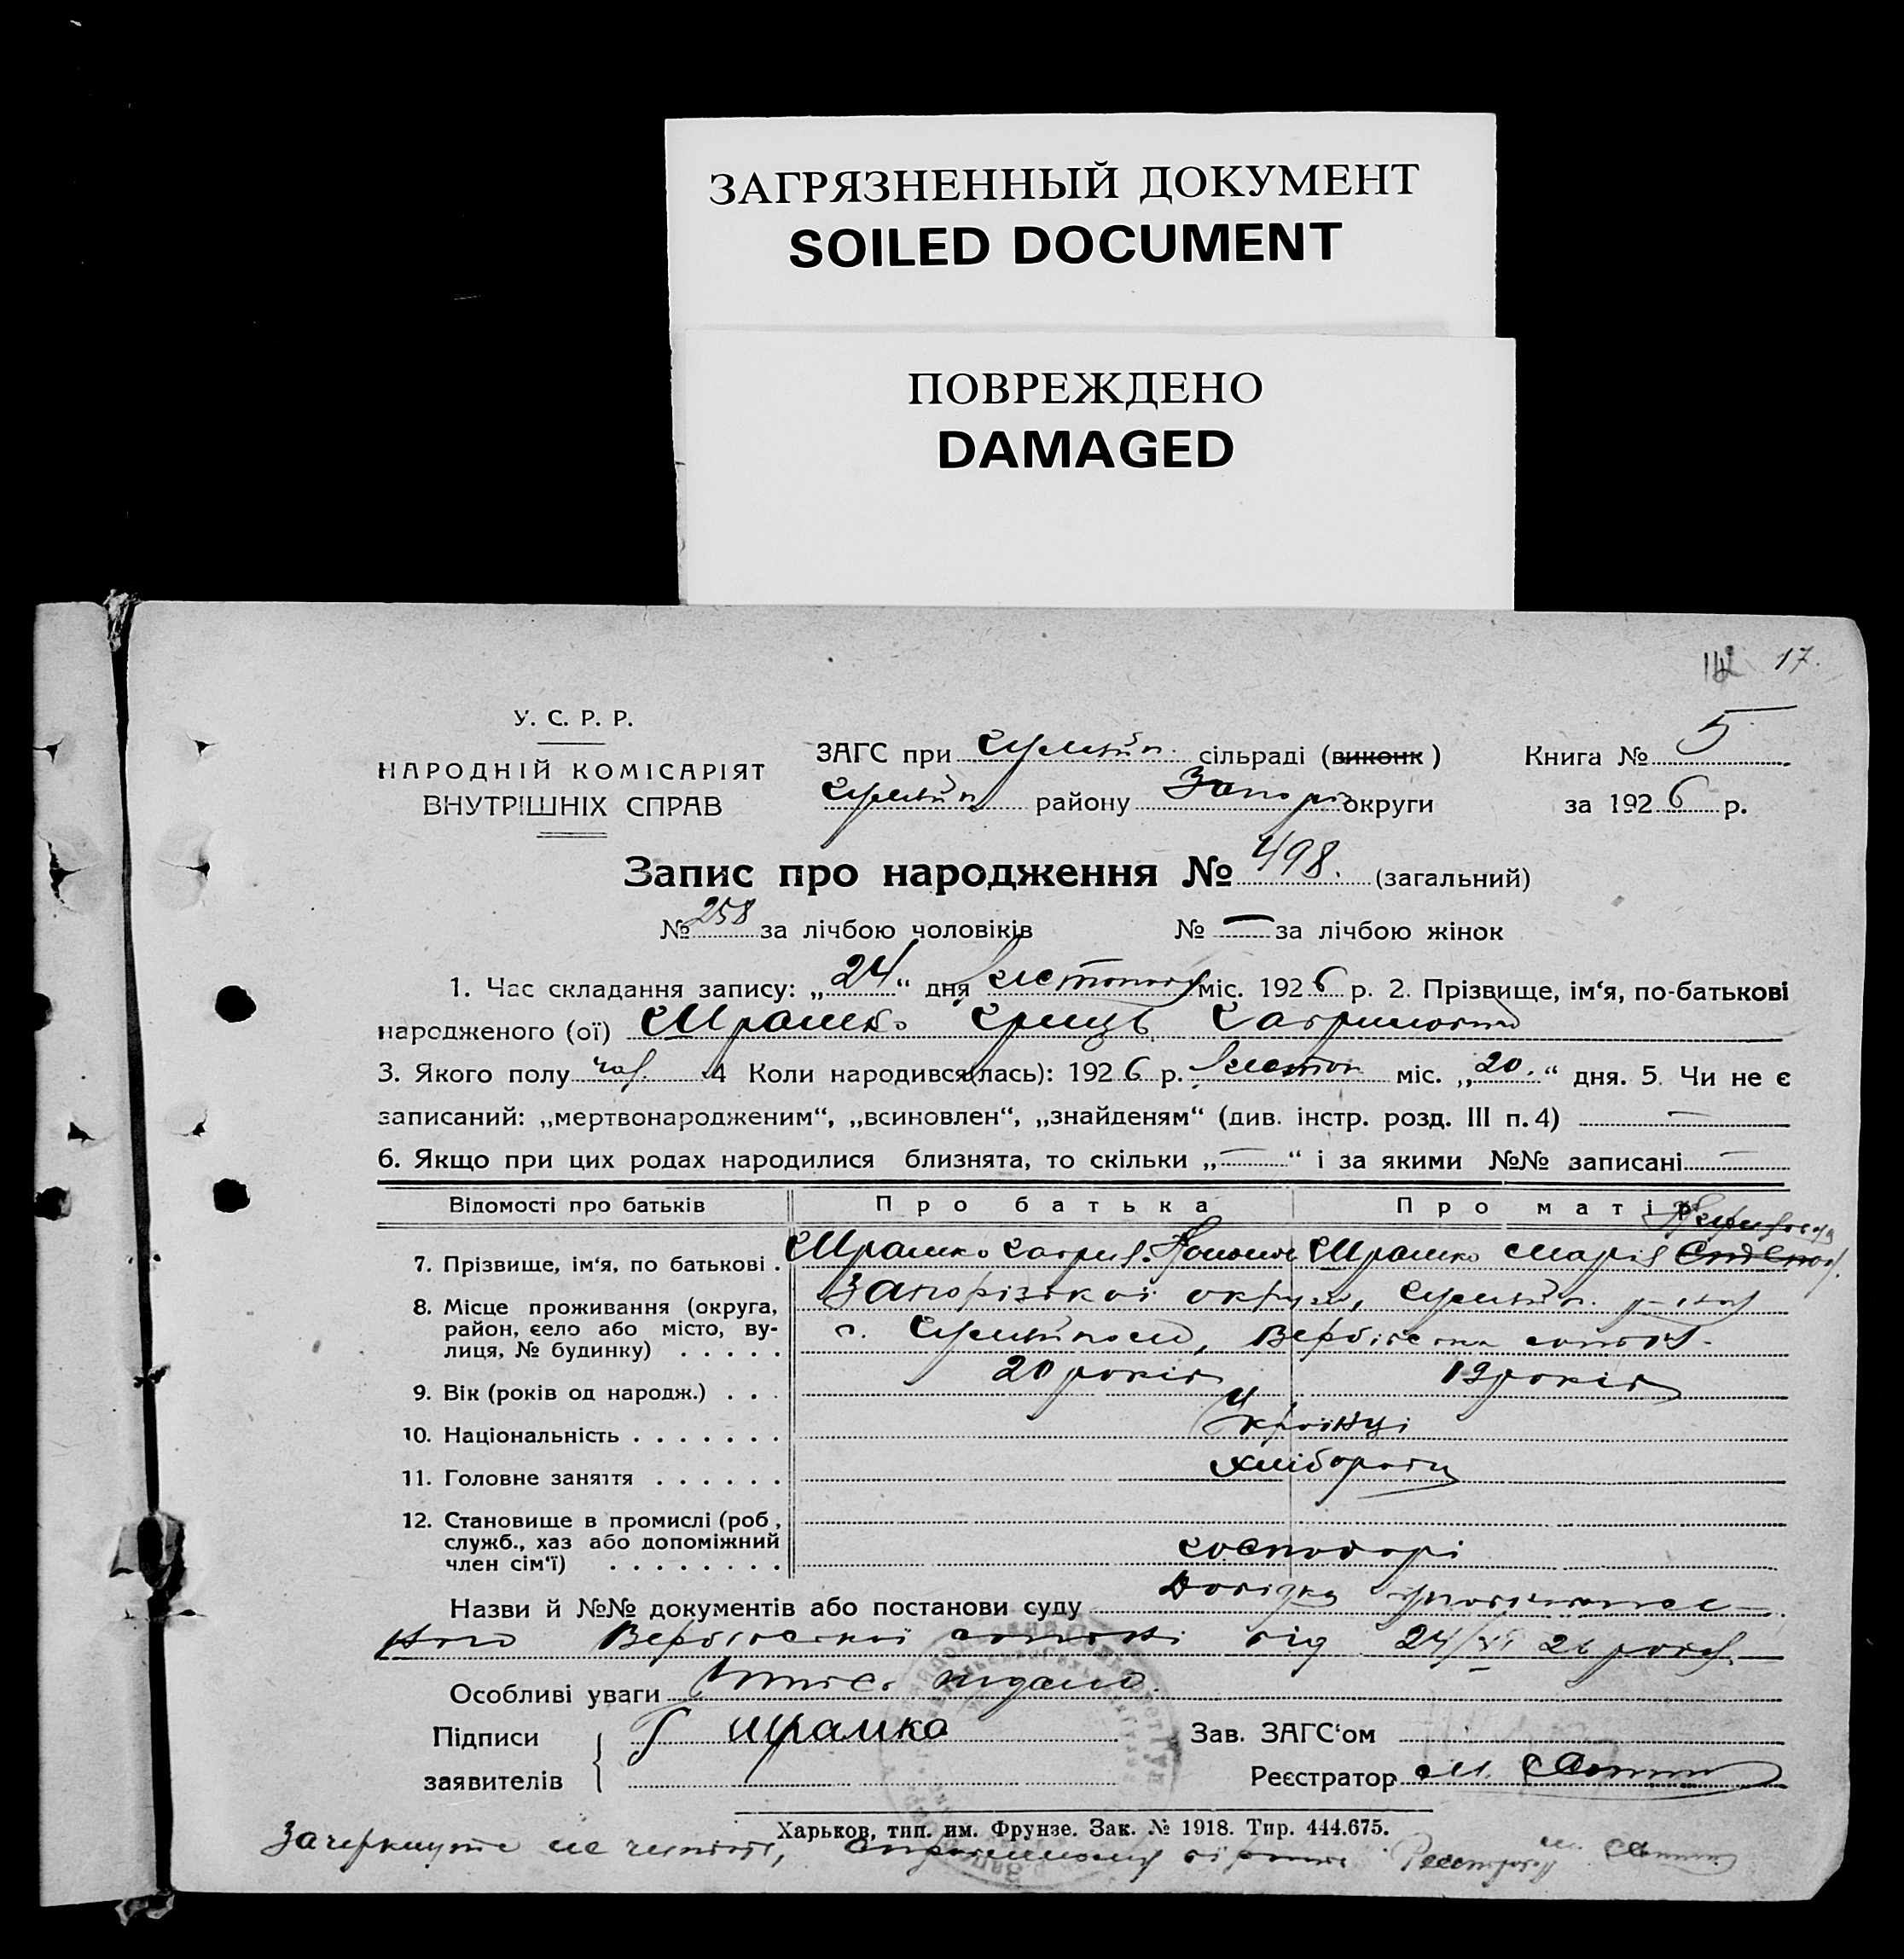 ЗАГРЯЗНЕННЫЙ ДОКУМЕНТ
SOILED DOCUMENT
ПОВРЕЖДЕНО
DAMAGED
17.
У. С. Р. Р.
НАРОДНІЙ КОМІСАРІЯТ
ВНУТРІШНІХ СПРАВ
ЗАГС при сільраді (виконк )
району Запорі округи
Книга № 5
за 1926 р.
Запис про народження № 498. (загальний)
№ 258 за лічбою чоловіків № — за лічбою жінок
1. Час складання запису: „24“ дня листопада міс. 1926 р. 2. Прізвище, ім‘я, по-батькові
народженого (ої) Шрамко Гриць Гаврилович
3. Якого полу чол. 4 Коли народився(лась): 1926 р. листоп міс. „20.“ дня. 5. Чи не є
записаний: „мертвонародженим“, „всиновлен“, „знайденям“ (див. інстр. розд. III п. 4) —
6. Якщо при цих родах народилися близнята, то скільки „—“ і за якими №№ записані —
Відомості про батьків Про батька Про матір
7. Прізвище, ім‘я, по батькові . Шрамко Гаврил Шрамко Марія
8. Місце проживання (округа, район, село або місто, вулиця, № будинку) . . . . . Запорізької округи,
9. Вік (років од народж.) . . . 20 років 19 років
10. Національність . . . . . . . Українці
11. Головне заняття . . . . . . Хлібороби
12. Становище в промислі (роб , служб., хаз або допоміжний член сім‘ї) . . . . . . . . господарі
Назви й №№ документів або постанови суду Довідка
Вербівської сотні від 24/XI 26 року.
Особливі уваги
Підписи
заявителів
Г Шрамко
Зав. ЗАГС‘ом
Реєстратор М.
Харьков, тип. им. Фрунзе. Зак. № 1918. Тир. 444.675.
Зачеркнуте не читать, вірить Реєстратор М.